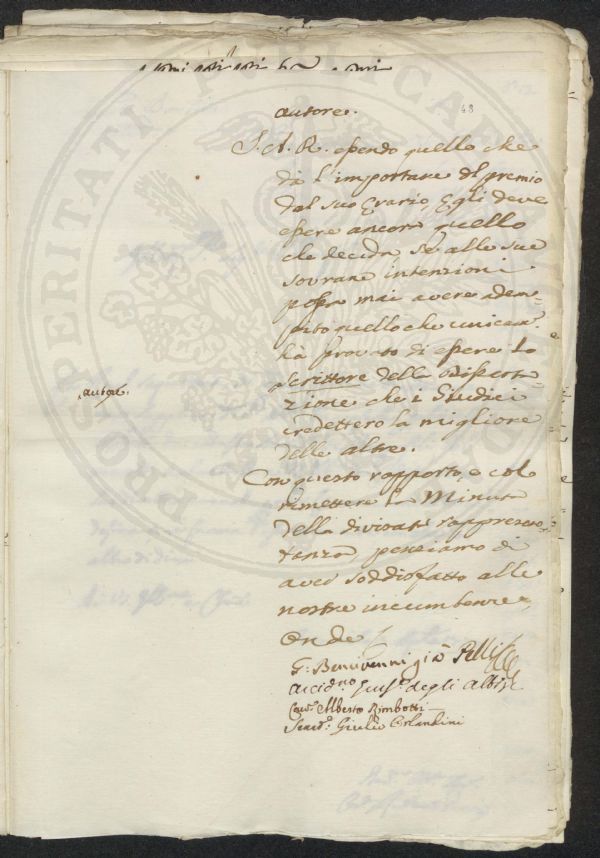 autore.
48
S. A. R. essendo quello che
dà l'importare del premio
dal suo Erario Egli deve
essere ancora quello
che decida se alle sue
sovrane intenzioni
possa mai avere adem-
pito quello che unicam.e
ha provato di essere lo
scrittore della Disserta
zione che i Giudici
credettero la migliore
delle altre.
autore.
Con questo rapporto, e col
rimettere la Minuta
della divisata rappresen
tanza pensiamo di
aver soddisfatto alle
nostre incumbenze,
Onde
G. Bencivenni già Pelli
degli Albizi
Cav.e Alberto Rimbotti
Giulio Orlandini
PROSPERITATI PUBLICAE